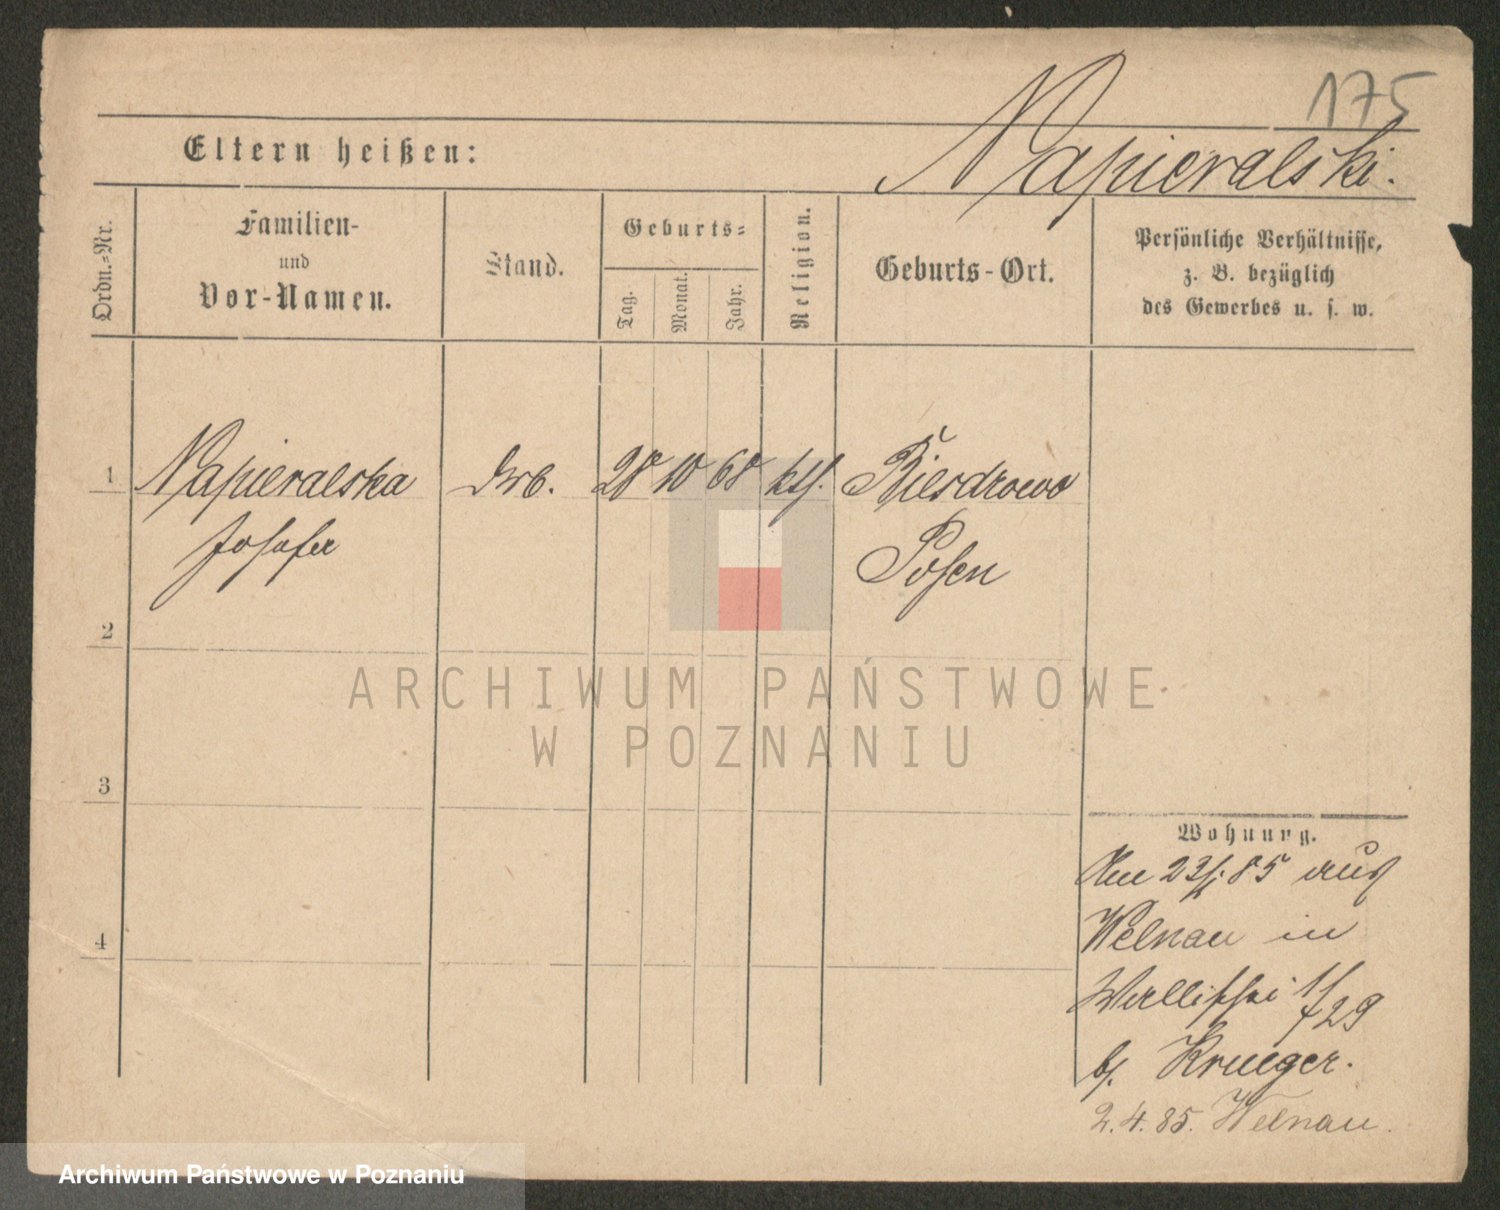 175
Napieralski.
Eltern heißen:
Ordn.=Nr.
Familien-
und
Vor-Namen.
Stand.
Geburts=
Tag.
Monat.
Jahr.
Religion.
Geburts-Ort.
Persönliche Verhältnisse,
z. B. bezüglich
des Gewerbes u. s. w.
1 Napieralska 28 10 68 ktl. Biesdrowo
Josefa Posen
2
3
4
Wohnung.
Am 23/1. 85 aus
Welnau in
Wallischei 1/29
b. Krueger.
2. 4. 85. Welnau.
ARCHIWUM PAŃSTWOWE
W POZNANIU
Archiwum Państwowe w Poznaniu